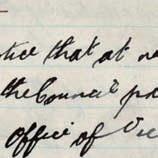 tice that at
the Council
office of Vic